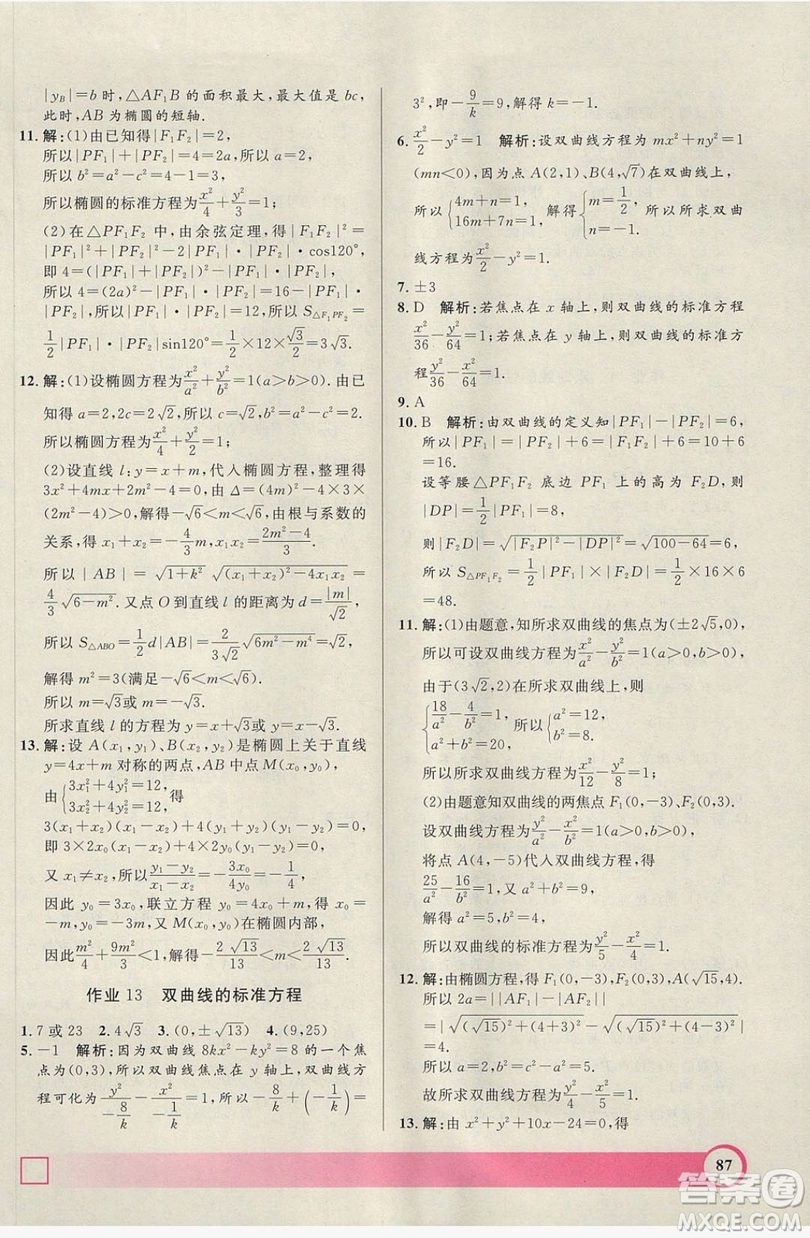 |y_B|=b 时,△AF₁B 的面积最大,最大值是 bc,
此时,AB 为椭圆的短轴.
11. 解:(1)由已知得|F₁F₂|=2,
所以|PF₁|+|PF₂|=4=2a,所以 a=2,
所以 b²=a²-c²=4-1=3,
所以椭圆的标准方程为x²/4+y²/3=1;
(2)在△PF₁F₂ 中,由余弦定理,得|F₁F₂|²=
|PF₁|²+|PF₂|²-2|PF₁|·|PF₂|·cos120°,
即 4=(|PF₁|+|PF₂|)²-|PF₁|·|PF₂|,
所以 4=(2a)²-|PF₁|·|PF₂|=16-|PF₁|·
|PF₂|,所以|PF₁|·|PF₂|=12,所以 S△F₁PF₂=
1/2|PF₁|·|PF₂|sin120°=1/2×12×√3/2=3√3.
12. 解:(1)设椭圆方程为x²/a²+y²/b²=1(a>b>0).由已
知得 a=2,2c=2√2,所以 c=√2,b²=a²-c²=2.
所以椭圆方程为x²/4+y²/2=1.
(2)设直线 l:y=x+m,代入椭圆方程,整理得
3x²+4mx+2m²-4=0,由 Δ=(4m)²-4×3×
(2m²-4)>0,解得-√6<m<√6,由根与系数的
关系,得 x₁+x₂=-4/3m,x₁x₂=(2m²-4)/3.
所以 |AB| = √(1+k²) √((x₁+x₂)²-4x₁x₂) =
4/3√(6-m²).又点 O 到直线 l 的距离为d=|m|/√2,
所以 S△ABO=1/2d|AB|=2/(3√2)√(6m²-m⁴)=1.
解得 m²=3(满足-√6<m<√6).
所以 m=√3或 m=-√3.
所求直线 l 的方程为 y=x+√3或 y=x-√3.
13. 解:设 A(x₁,y₁)、B(x₂,y₂)是椭圆上关于直线
y=4x+m 对称的两点,AB 中点 M(x₀,y₀),
由{3x₁²+4y₁²=12, 3x₂²+4y₂²=12,得
3(x₁+x₂)(x₁-x₂)+4(y₁+y₂)(y₁-y₂)=0,
即 3x₀(x₁-x₂)+4y₀(y₁-y₂)=0.
又 x₁≠x₂,所以(y₁-y₂)/(x₁-x₂)=-3x₀/4y₀=-1/4.
因此 y₀=3x₀,联立方程 y₀=4x₀+m,得 x₀=
-m,y₀=-3m,又 M(x₀,y₀)在椭圆内部,
因此m²/4+9m²/3<1,解得-2√13/13<m<2√13/13.
作业 13 双曲线的标准方程
1. 7 或 23 2. 4√3 3. (0,±√13) 4. (9,25)
5. -1 解析:因为双曲线 8kx²-ky²=8 的一个焦
点为(0,3),所以双曲线焦点在 y 轴上,双曲线方
程可化为y²/(-8/k)-x²/(-1/k)=1,所以-8/k+(-1/k)=
3²,即-9/k=9,解得 k=-1.
6. x²/2-y²=1 解析:设双曲线方程为 mx²+ny²=1
(mn<0),因为点 A(2,1)、B(4,√7)在双曲线上,
所以{4m+n=1, 16m+7n=1, 解得{m=1/2, n=-1. 所以所求双曲
线方程为x²/2-y²=1.
7. ±3
8. D 解析:若焦点在 x 轴上,则双曲线的标准方程
为x²/36-y²/64=1;若焦点在 y 轴上,则双曲线的标准方
程y²/36-x²/64=1.
9. A
10. B 解析:由双曲线的定义知|PF₁|-|PF₂|=6,
所以|PF₁|=|PF₂|+6=|F₁F₂|+6=10+6
=16.
设等腰△PF₁F₂ 底边 PF₁ 上的高为 F₂D,则
|DP|=1/2|PF₁|=8,
则|F₂D|=√(|F₂P|²-|DP|²)=√(100-64)=6.
所以 S△PF₁F₂=1/2|PF₁|×|F₂D|=1/2×16×6
=48.
11. 解:(1)由题意,知所求双曲线的焦点为(±2√5,0),
所以可设双曲线方程为x²/a²-y²/b²=1(a>0,b>0).
由于(3√2,2)在所求双曲线上,
{18/a²-4/b²=1, a²+b²=20, 所以{a²=12, b²=8.
所以所求双曲线方程为x²/12-y²/8=1.
(2)由题意知双曲线的两焦点 F₁(0,-3)、F₂(0,3).
设双曲线方程为y²/a²-x²/b²=1(a>0,b>0),
将点 A(4,-5)代入双曲线方程,得
25/a²-16/b²=1,又 a²+b²=9,
解得 a²=5,b²=4.
所以双曲线的标准方程为y²/5-x²/4=1.
12. 解:由椭圆方程,得 F₁(0,-3)、F₂(0,3)、A(√15,4).
所以 2a=||AF₁|-|AF₂||
=|√((√15)²+(4+3)²)-√((√15)²+(4-3)²)|
=4.
所以 a=2,b²=c²-a²=9-4=5.
故所求双曲线方程为y²/4-x²/5=1.
13. 解:由 x²+y²+10x-24=0,
87
答案圈
MXQE.COM